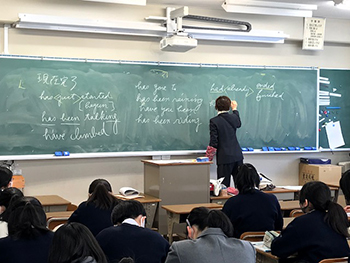 現在完了
has just started
(begun)
has been talking
have climbed
has gone to
has been raining
have you been
has been riding
had already ended
finished